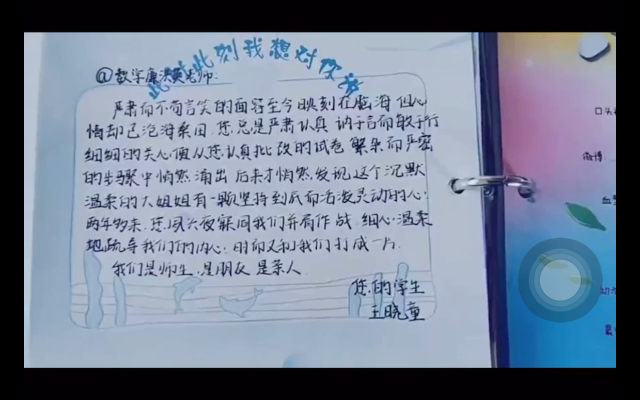 此时此刻我想对你说
@数学廉洪英老师:
严肃而不苟言笑的面容至今映刻在脑海 但心
情却已沧海桑田.您总是严肃认真 讷于言而敏于行
细细的关心便从您认真批改的试卷 繁杂而严密
的步骤中悄然流出 后来才恍然发现这个沉默
温柔的大姐姐有一颗坚持到底而活泼灵动的心.
两年多来.您夙兴夜寐同我们并肩作战.细心.温柔
地疏导我们的内心.时而又和我们打成一片.
我们是师生.是朋友 是亲人
您的学生
王晓童
口头
微博: